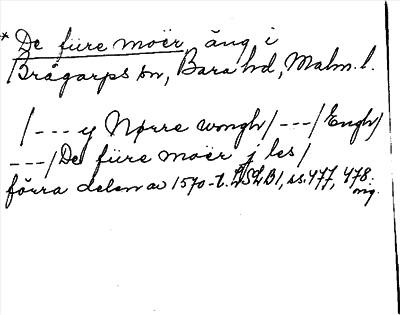 * De füre moër, äng i
Brågarps sn, Bara hd, Malm. l.
/--- y Nørre wongh/---/Engh/
---/De füre moër j les/
förra delen av 1570-t. LSLB1, ss. 477, 478.